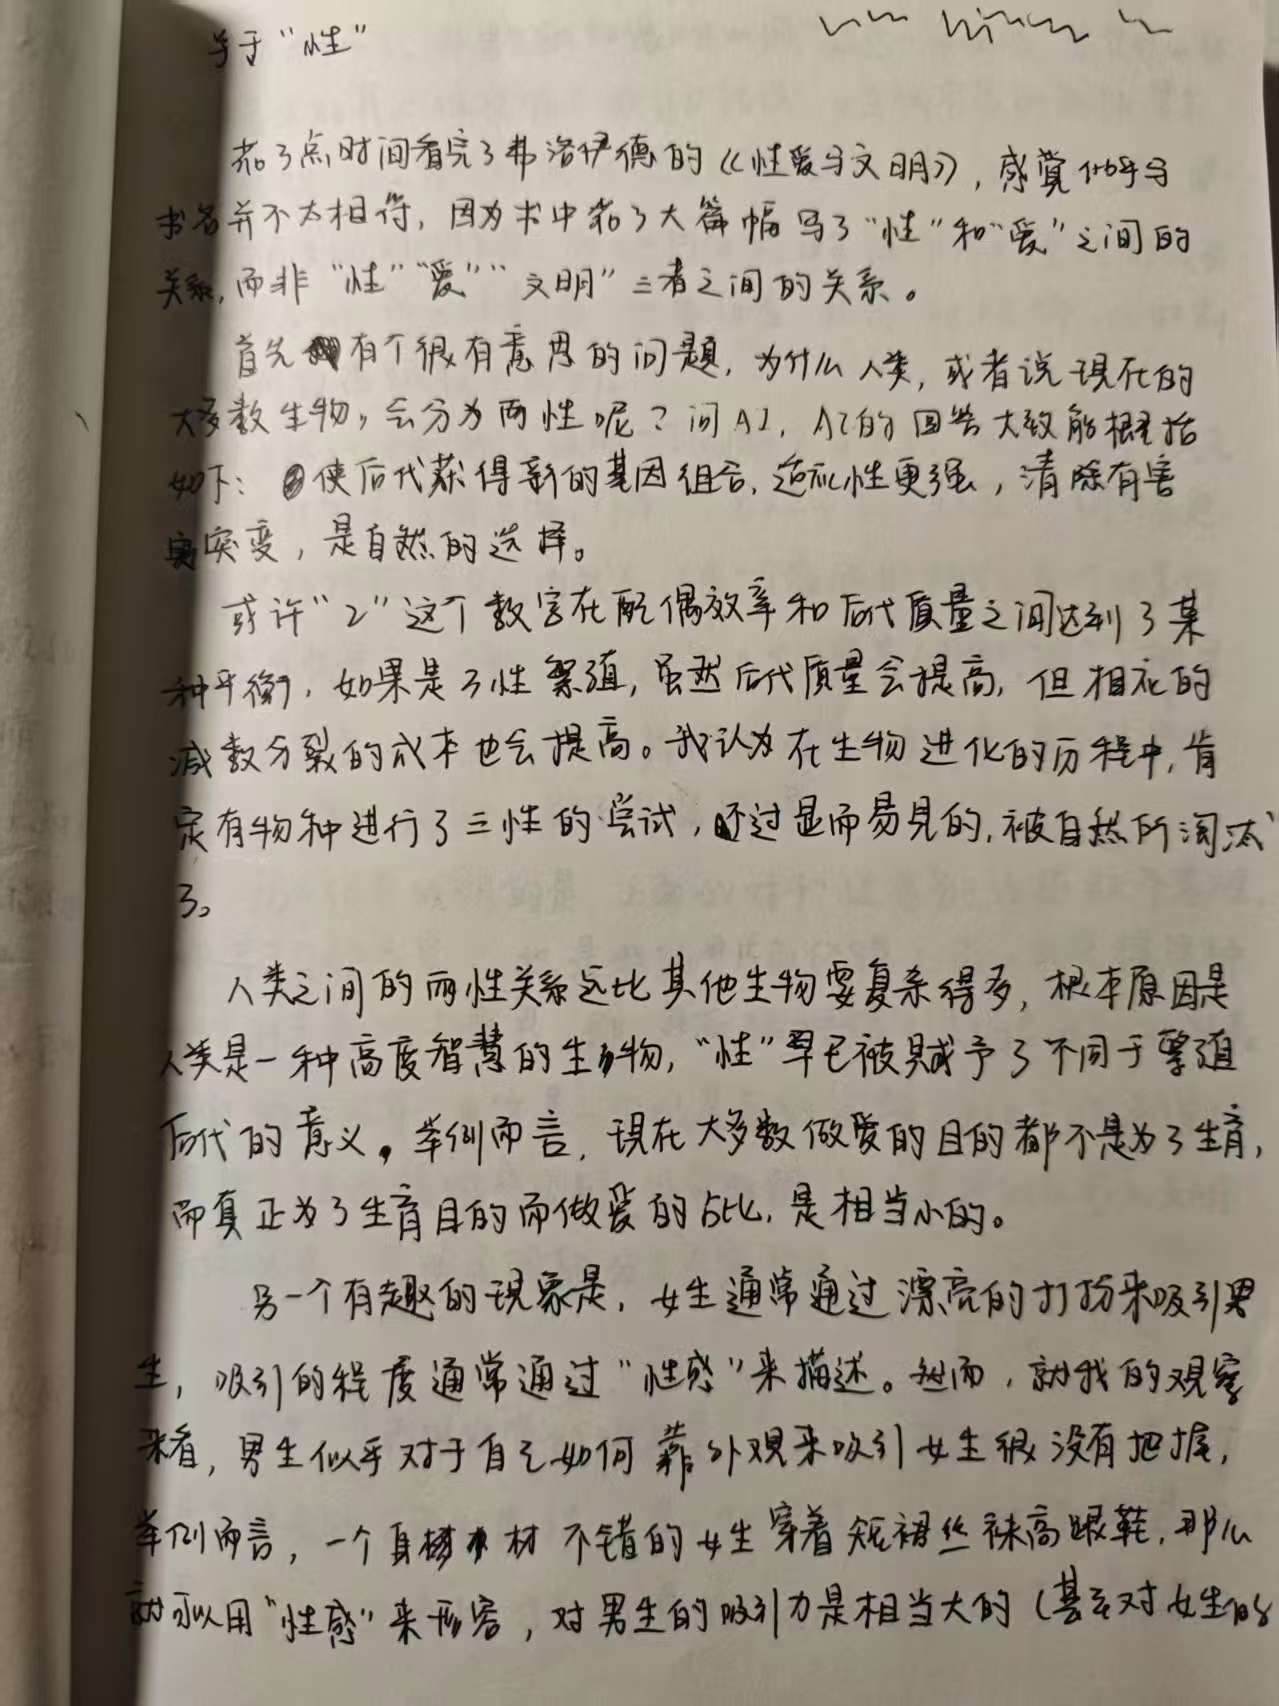 关于“性”
花了点时间看完了弗洛伊德的《性爱与文明》,感觉似乎与
书名并不太相符,因为书中花了大篇幅写了“性”和“爱”之间的
关系,而非“性”“爱”“文明”三者之间的关系。
首先有个很有意思的问题,为什么人类,或者说现在的
大多数生物,会分为两性呢?问AI,AI的回答大致能概括
如下:使后代获得新的基因组合,适应性更强,清除有害
突变,是自然的选择。
或许“2”这个数字在配偶效率和后代质量之间达到了某
种平衡,如果是3性繁殖,虽然后代质量会提高,但相应的
减数分裂的成本也会提高。我认为在生物进化的历程中,肯
定有物种进行了三性的尝试,不过显而易见的,被自然所淘汰
了。
人类之间的两性关系远比其他生物要复杂得多,根本原因是
人类是一种高度智慧的生物,“性”早已被赋予了不同于繁殖
后代的意义。举例而言,现在大多数做爱的目的都不是为了生育,
而真正为了生育目的而做爱的占比,是相当小的。
另一个有趣的现象是,女生通常通过漂亮的打扮来吸引男
生,吸引的程度通常通过“性感”来描述。然而,就我的观察
来看,男生似乎对于自己如何靠外观来吸引女生很没有把握,
举例而言,一个身材不错的女生穿着短裙丝袜高跟鞋,那么
就可以用“性感”来形容,对男生的吸引力是相当大的(甚至对女生的